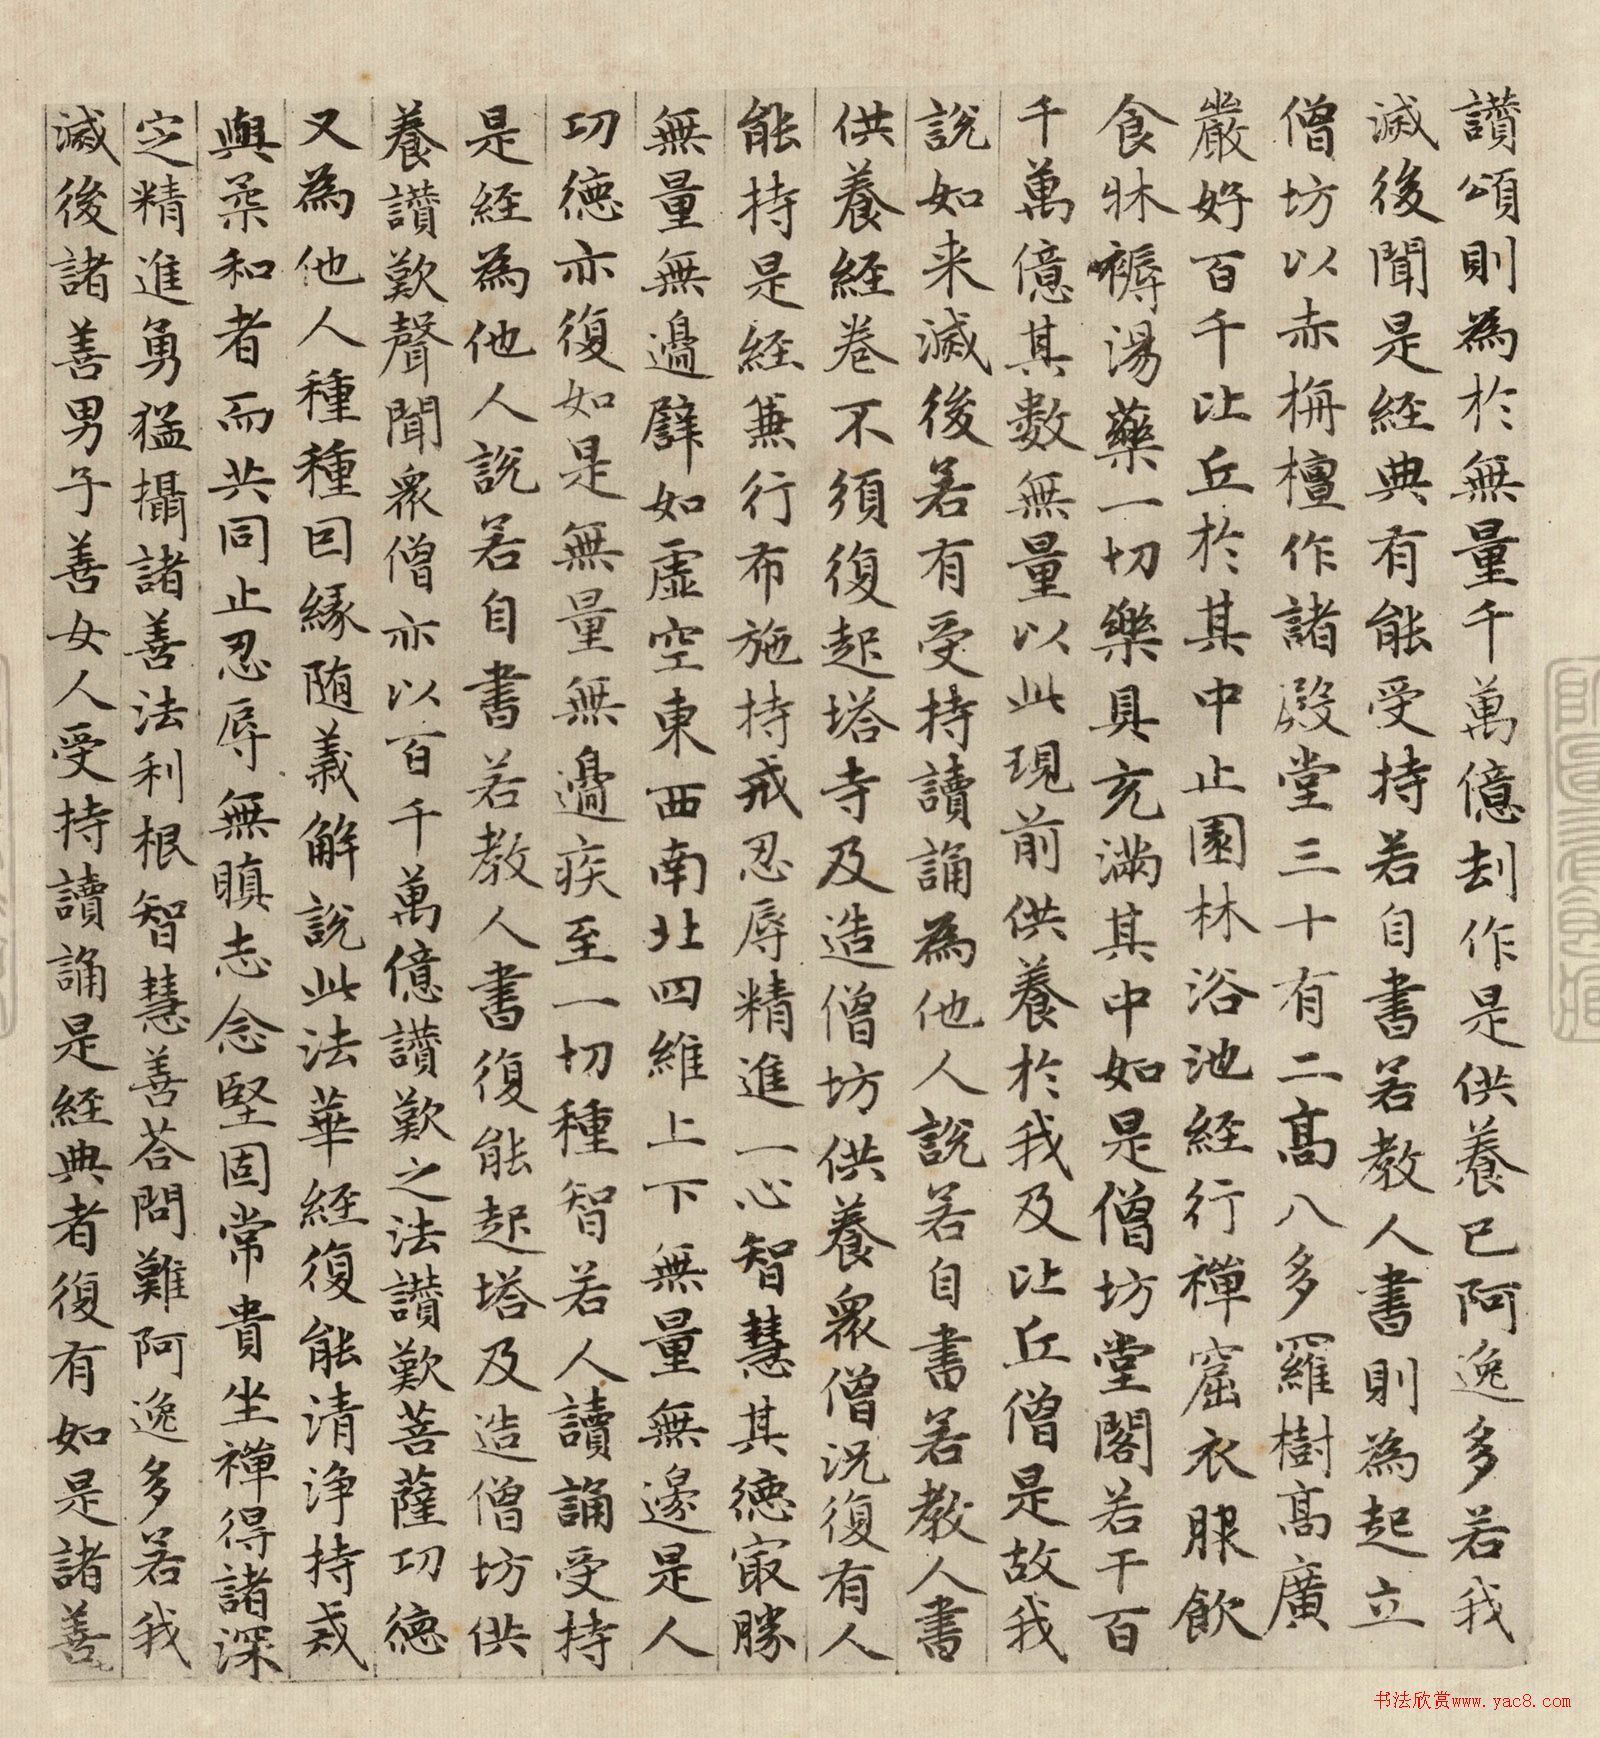 讚頌則為於無量千萬億劫作是供養已阿逸多若我
滅後聞是經典有能受持若自書若教人書則為起立
僧坊以赤栴檀作諸殿堂三十有二高八多羅樹高廣
嚴好百千比丘於其中止園林浴池經行禪窟衣服飲
食牀褥湯藥一切樂具充滿其中如是僧坊堂閣若干百
千萬億其數無量以此現前供養於我及比丘僧是故我
說如来滅後若有受持讀誦為他人說若自書若教人書
供養經卷不須復起塔寺及造僧坊供養眾僧況復有人
能持是經兼行布施持戒忍辱精進一心智慧其德冣勝
無量無邊譬如虛空東西南北四維上下無量無邊是人
功德亦復如是無量無邊疾至一切種智若人讀誦受持
是經為他人說若自書若教人書復能起塔及造僧坊供
養讚歎聲聞眾僧亦以百千萬億讚歎之法讚歎菩薩功德
又為他人種種因緣随義解說此法華經復能清淨持戒
與柔和者而共同止忍辱無瞋志念堅固常貴坐禪得諸深
定精進勇猛攝諸善法利根智慧善荅問難阿逸多若我
滅後諸善男子善女人受持讀誦是經典者復有如是諸善
书法欣赏www.yac8.com